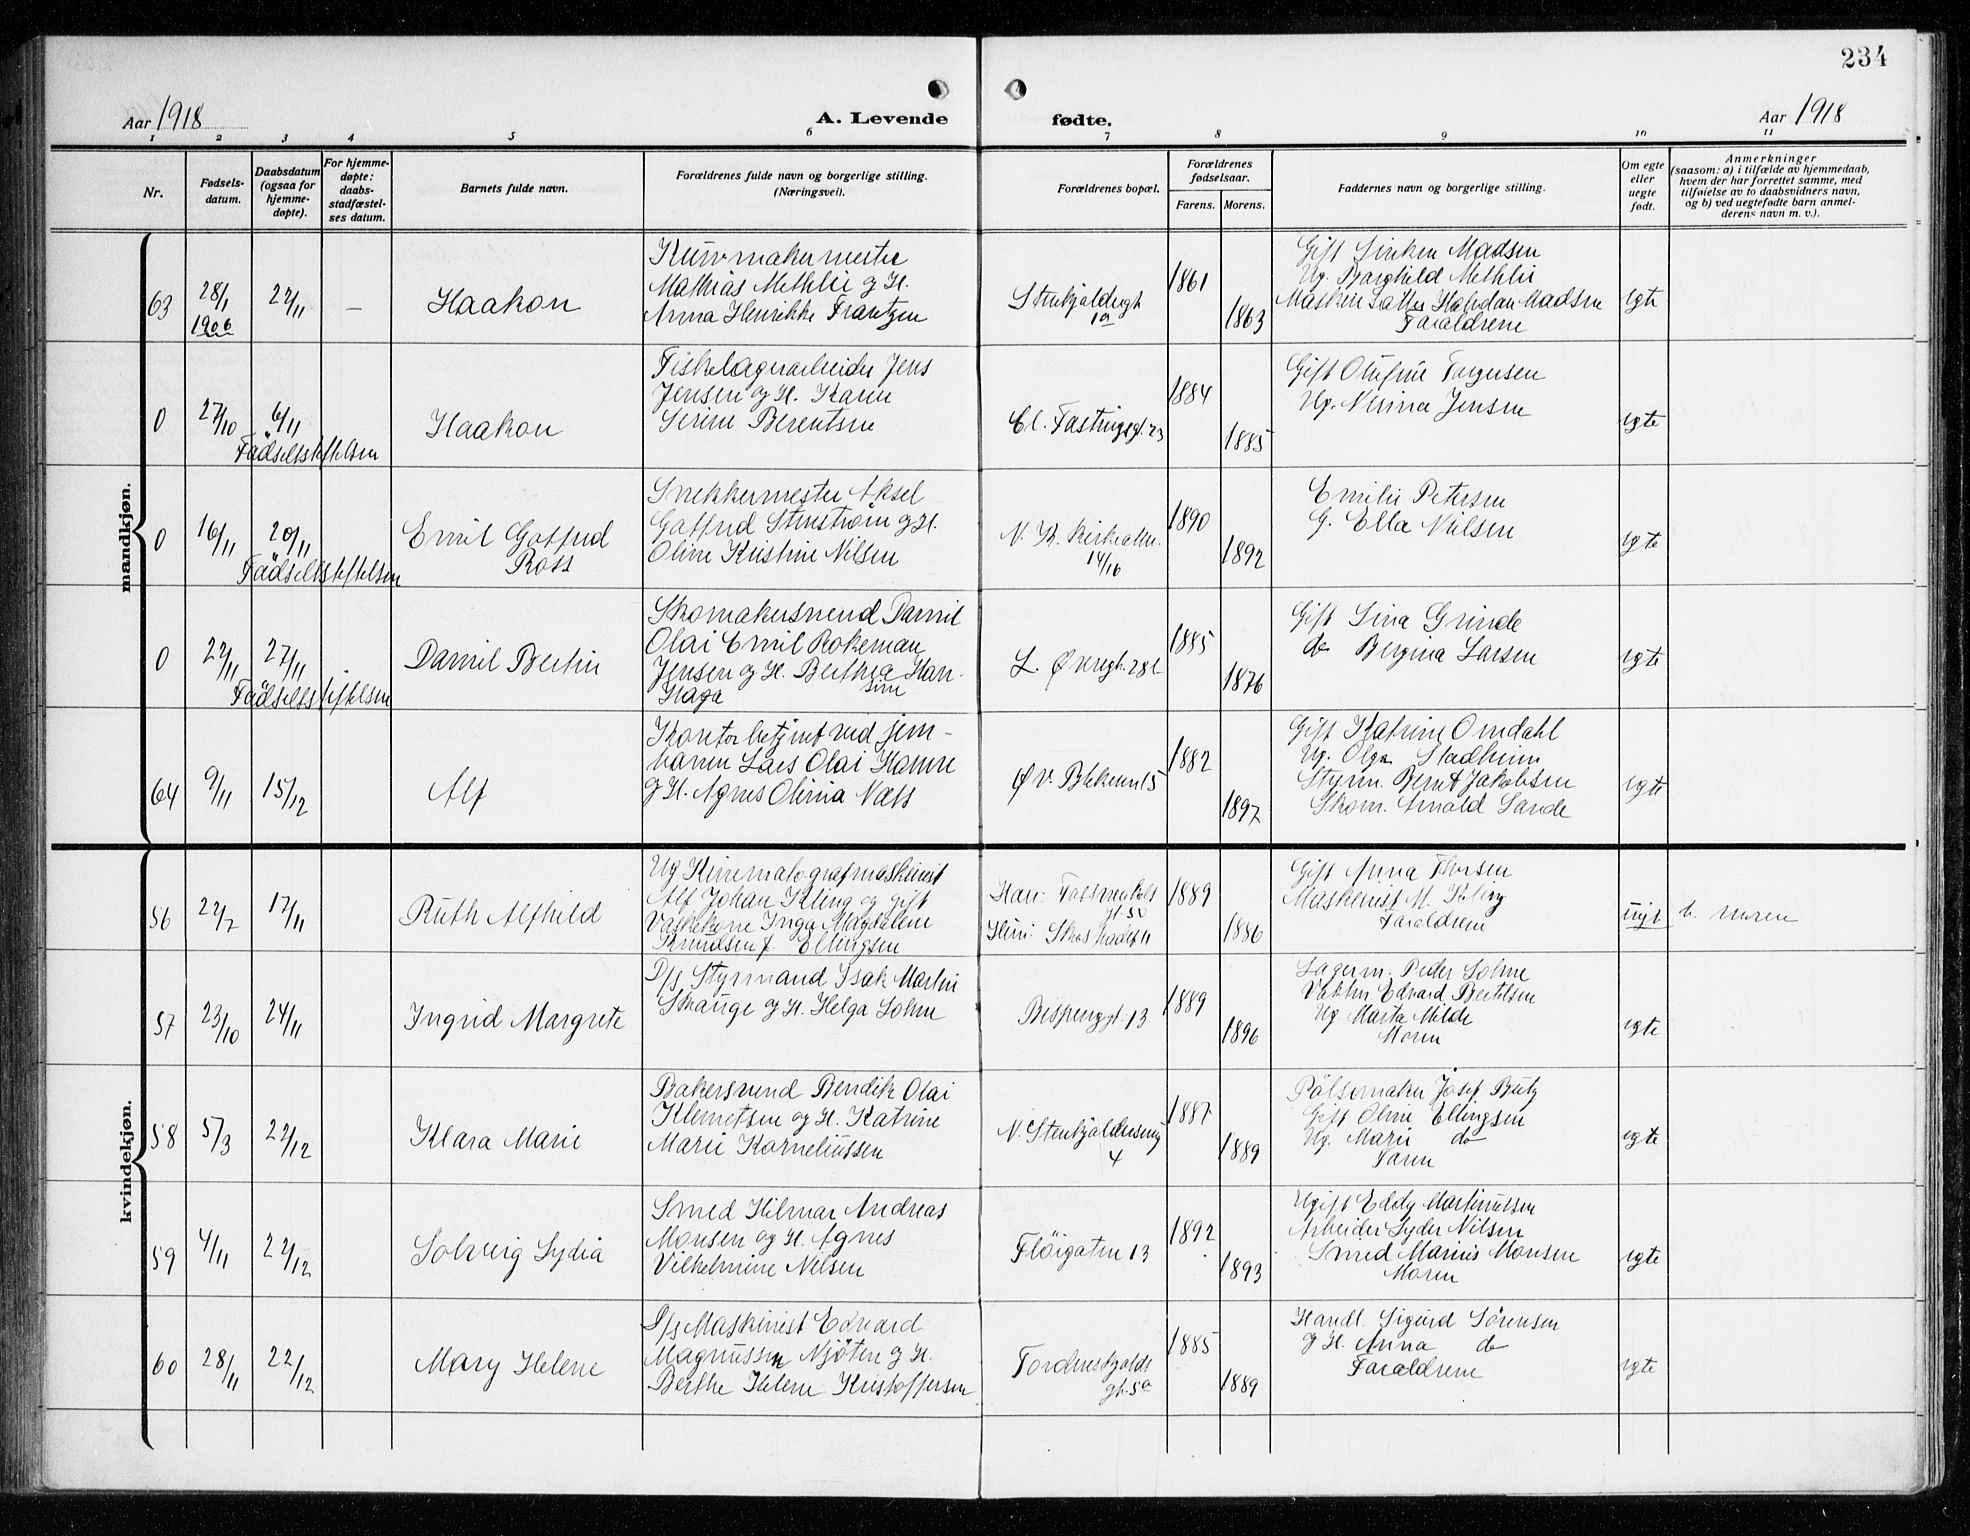 234
Aar 1918
A. Levende
fødte.
Aar 1918
1 2 3 4 5 6 7 8 9 10 11
Nr.
Fødsels-
datum.
Daabsdatum
(ogsaa for
hjemme-
døpte).
For hjemme-
døpte:
daabs-
stadfæstel-
ses datum.
Barnets fulde navn.
Forældrenes fulde navn og borgerlige stilling.
(Næringsvei).
Forældrenes bopæl.
Forældrenes
fødselsaar.
Farens. Morens.
Faddernes navn og borgerlige stilling.
Om egte
eller
uegte
født.
Anmerkninger
(saasom: a) i tilfælde av hjemmedaab,
hvem der har forrettet samme, med
tilføielse av to daabsvidners navn,
og b) ved uegtefødte barn anmel-
derens navn m. v.).
mandkjøn.
63
28/1
1906
22/11
—
Haakon
Kurvmakermester
Mathias Methlie og H.
Anna Henrikke Frantzen
Stenkjeldergt
1a
1861
1863
Gift Sirikin Madsen
Ug. Borghild Methlie
Halfdan Madsen
Forældrene
egte
0
27/10
6/11
Fødselsstiftelsen
Haakon
Fiskelagerarbeider Jens
Jensen og H. Karen
Serine Berentsen
Cl. Fastingsgt. 23
1884
1885
Gift Olufine Torgersen
Ug. Nerina Jensen
egte
0
16/11
20/11
Fødselsstiftelsen
Emil Gotfred
Ross
Snekkermester Aksel
Gotfred Stenstrøm og H.
Oline Kristine Nilsen
N. K. Kirkealm.
14/16
1890
1892
Emilie Petersen
G. Ella Nilsen
egte
0
22/11
27/11
Fødselsstiftelsen
Daniel Bertin
Skomakersvend Daniel
Olai Emil Rokeman
Jensen og H. Berthea Han-
Haga sine
L. Øvregt. 28b
1885
1876
Gift Lina Grinde
do Bergina Larsen
egte
64
9/11
15/12
Alf
Kontorbetjent ved jern-
banen Lars Olai Hamre
og H. Agnes Olina Næss
Øv. Blekevei 15
1882
1897
Gift Katrine Omdahl
Ug. Olga Stadheim
Styrm. Bernt Jakobsen
Skom. Arnold Sande
egte
kvindekjøn.
56
22/7
17/11
Ruth Alfhild
Ug Kinematografmaskinist
Alf Johan Kling og gift
Vaskekone Inga Magdalene
Knudsen f. Ellingsen
Han: Fosswinkels
gt. 50
Hun:
1889
1886
Gift Anna Thorsen
Maskinist M. Kling
Forældrene
uegt
b. Moren
57
23/10
24/11
Ingrid Margrete
D/s Styrmand Isak Martin
Skauge og H. Helga Solme
Bispenggt. 13
1889
1896
Lagerm. Peder Solme
Vaktm. Edvard Bertelsen
Ug Marta Milde
Moren
egte
58
5/3
22/12
Klara Marie
Bakersvend Bendik Olai
Klemetsen og H. Katrine
Marie Korneliussen
N. Stenkjeldersmug
4
1887
1889
Pølsemaker Josef Butz
Gift Oline Ellingsen
Ug. Marie do
Faren
egte
59
4/11
22/12
Solveig Lydia
Smed Hilmar Andreas
Monsen og H. Agnes
Vilhelmine Nilsen
Fløigaten 13
1892
1893
Ugift Eddy Martinussen
Arbeider Syder Nilsen
Smed Marius Monsen
Moren
egte
60
28/11
22/12
Mary Helene
D/s Maskinist Edvard
Magnussen Njøten og H.
Berthe Helene Kristoffersen
Tordenskjolds
gt. 5a
1885
1889
Handl. Sigurd Sørensen
og H. Anna do
Forældrene
egte